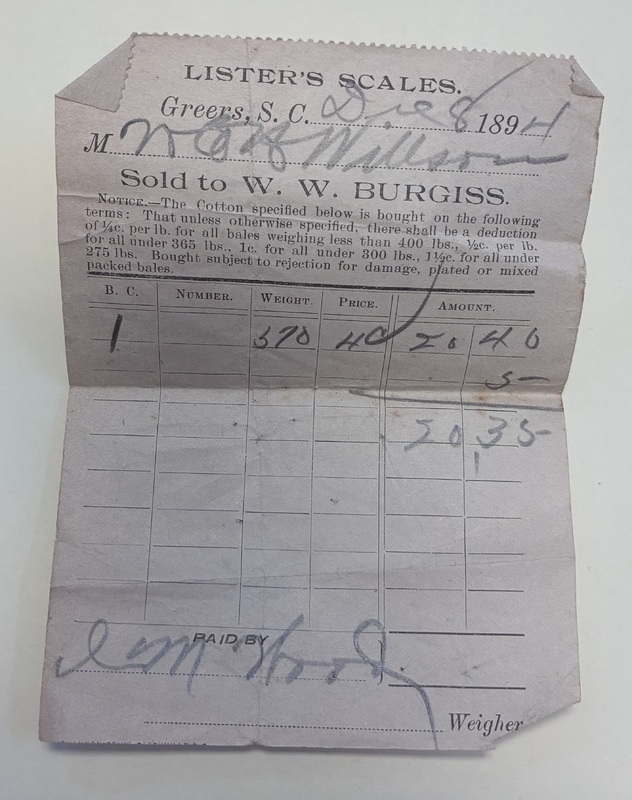 LISTER'S SCALES.
Greers, S. C. Dec 8 1894
M Willson
Sold to W. W. BURGISS.
NOTICE.—The Cotton specified below is bought on the following
terms: That unless otherwise specified, there shall be a deduction
of ¼c. per lb. for all bales weighing less than 400 lbs., ½c. per lb.
for all under 365 lbs., 1c. for all under 300 lbs., 1½c. for all under
275 lbs. Bought subject to rejection for damage, plated or mixed
packed bales.
B. C. NUMBER. WEIGHT. PRICE. AMOUNT.
1 370 20 40
5
20 35
PAID BY
M Wood
Weigher